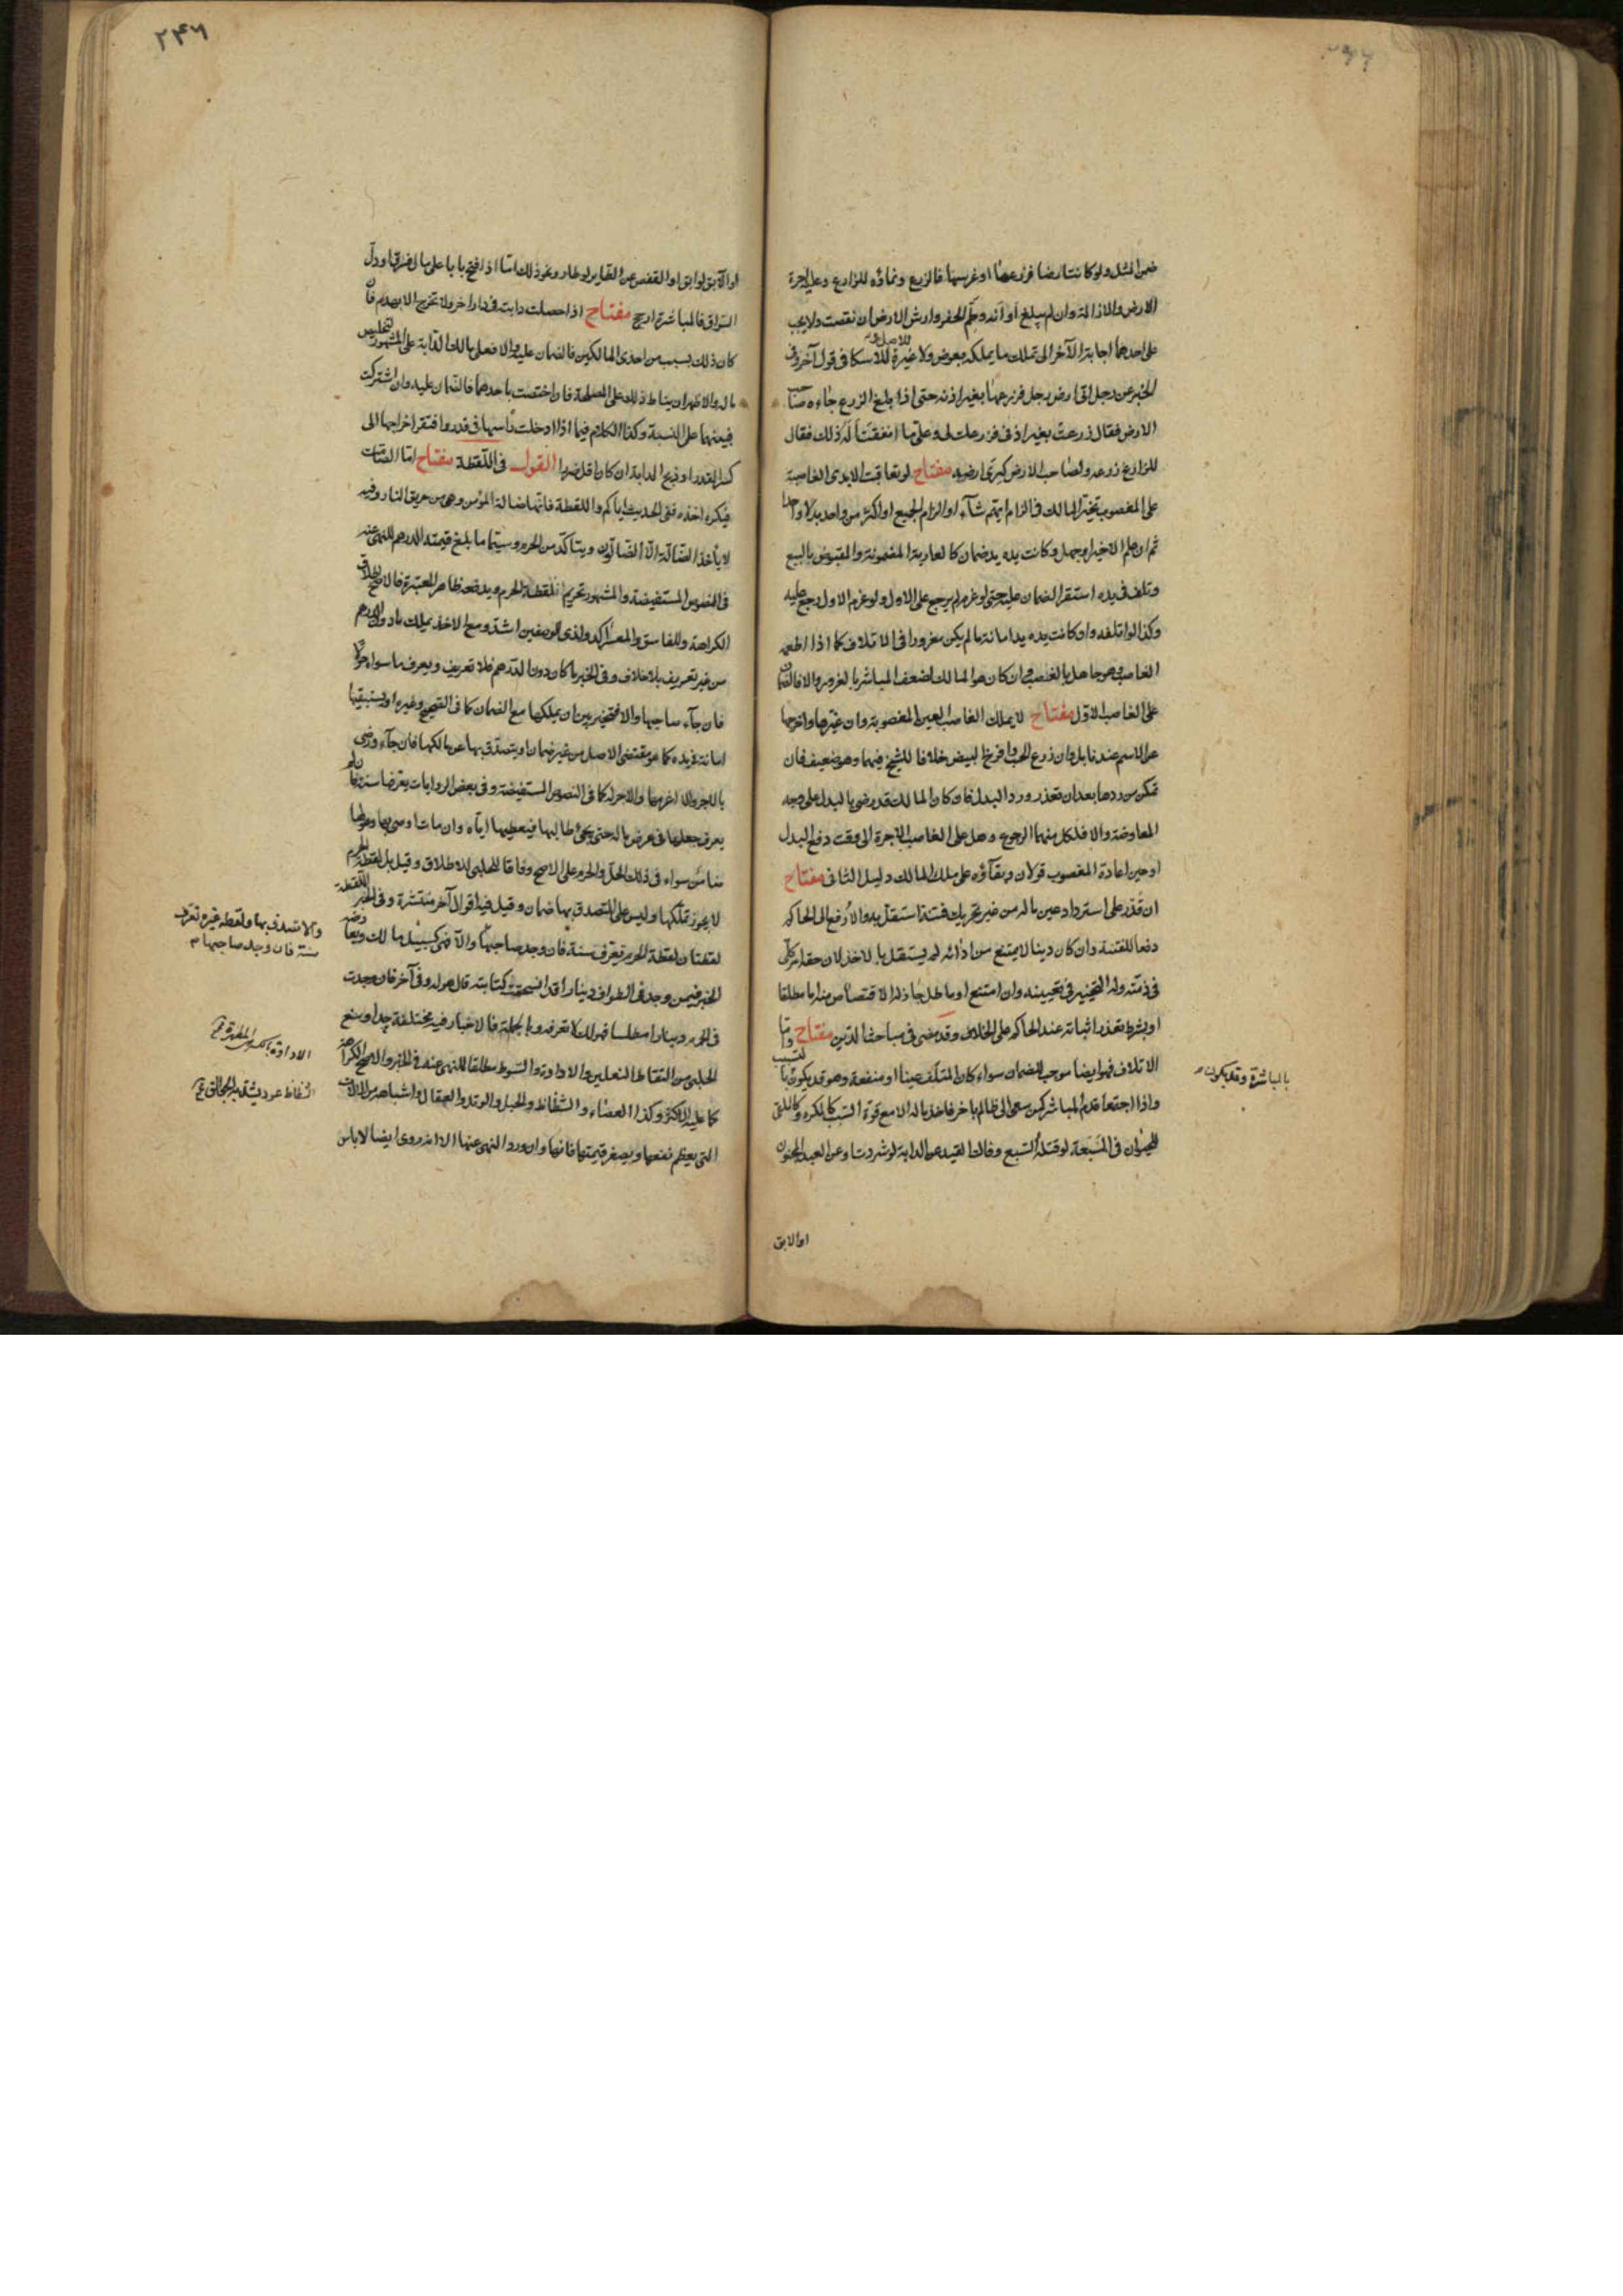 ضمن المثل ولو كانت ارضا فزرعها او غرسها فالزرع ونماؤه للزارع وعليه اجرة
الارض والازالة وان لم يبلغ أوانه وطم الحفر وارش الارض ان نقصت ولا يجب
على احدهما اجابة الآخر الى تملك ما يملكه بعوض ولا غيره للاصل وللاسكافى قول آخر وفى
الخبر عن رجل اتى ارض رجل فزرعها بغير اذنه حتى اذا بلغ الزرع جاءه صاحب
الارض فقال زرعت بغير اذنى فزرعك لى وعلىّ ما انفقت أله ذلك فقال
للزارع زرعه ولصاحب الارض كرى ارضه مفتاح لو تعاقبت الايدى الغاصبة
على المغصوب تخير المالك فى الزام ايهم شاء او الزام الجميع او اكثر من واحد بدلا واحدا
ثم ان علم الاخير او جهل وكانت يده يد ضمان كالعارية المضمونة والمقبوض بالبيع
وتلف فى يده استقر الضمان عليه حتى لو غرم لم يرجع على الاول ولو غرم الاول رجع عليه
وكذا لو اتلفه وان كانت يده يد امانة ما لم يكن مغرورا فى الاتلاف كما اذا اطعمه
الغاصب وهو جاهل بالغصب وان كان هو المالك لضعف المباشر بالغرور والا فالضمان
على الغاصب الاول مفتاح لا يملك الغاصب العين المغصوبة وان غيّرها واخرجها
عن الاسم عندنا بل وان زرع الحب وافرخ البيض خلافا للشيخ فيهما وهو ضعيف فان
تمكن من ردها بعد ان تعذر ورد البدل فان كان المالك قد رضى بالبدل على وجه
المعاوضة والا فلكل منهما الرجوع وهل على الغاصب الاجرة الى وقت دفع البدل
او حين اعادة المغصوب قولان وبقاؤه على ملك المالك دليل الثانى مفتاح
ان قدر على استرداد عين ماله من غير تحريك فتنة استقل به والا رفع الى الحاكم
دفعا للفتنة وان كان دينا لا يمتنع من ادائه لم يستقل بالاخذ لان حقه امر كلى
فى ذمته وله التخيير فى تعيينه وان امتنع او ماطل جاز له الاقتصاص منه اما مطلقا
او بشرط تعذر اثباته عند الحاكم على الخلاف وقد مضى فى مباحث الدين مفتاح واما
الاتلاف فهو ايضا موجب للضمان سواء كان المتلف عينا او منفعة وهو قد يكون بالتسبب
واذا اجتمعا قدم المباشر كمن سعى الى ظالم باخر فاخذ ماله الا مع قوة السبب كالمكره وكالملقى
للحيوان فى المسبعة لو قتله السبع وفاك القيد عن الدابة لو شردت او عن العبد المجنون
او الابق
بالمباشرة وقد يكون
٢٤٦
او الآبق لو ابق او القفص عن الطاير لو طار ونحو ذلك اما اذا فتح بابا على مال فسرقها ودلّ
السراق فالمباشر ارجح مفتاح اذا حصلت دابته فى دار اخر ولا تخرج الا بهدم فان
كان ذلك بسبب من احدى المالكين فالضمان عليه والا فعلى مالك الدابة على المشهور لتخليص
ماله والاظهر ان يناط ذلك على المصلحة فان اختصت باحدهما فالضمان عليه وان اشتركت
فبينهما على النسبة وكذا الكلام فيما اذا ادخلت رأسها فى قدر وافتقر اخراجها الى
كسر القدر او ذبح الدابة ان كان اقل ضررا القول فى اللقطة مفتاح اما الصامت
فيكره اخذه ففى الحديث اياكم واللقطة فانها ضالة المؤمن وهى من حريق النار وفيه
لا يأخذ الضالة الا الضالون ويتأكد من الحرم وسيما ما بلغ قيمته الدرهم للنهى عنه
فى النصوص المستفيضة والمشهور تحريم لقطة الحرم ويدفعه ظاهر المعتبرة فالاصح اطلاق
الكراهة وللفاسق والمعسر آكد ولذى الوصفين اشد ومع الاخذ يملك ما دون الدرهم
من غير تعريف بلا خلاف وفى الخبر ما كان دون الدرهم فلا تعريف ويعرف ما سواه حولا
فان جاء صاحبها والا فتخير بين ان يملكها مع الضمان كما فى الصحيح وغيره او يستبقيها
امانة فى يده كما هو مقتضى الاصل من غير ضمان او يتصدق بها عن مالكها فان جاء ورضى
بالاجر والا اغرمها والاجر له كما فى النصوص المستفيضة وفى بعض الروايات يعرفها سنة فان لم
يعرف جعلها فى عرض ماله حتى يجئ طالبها فيعطيها اياه وان مات اوصى بها وهو لها
ضامن سواء فى ذلك الحل والحرم على الاصح وفاقا للحلبى للاطلاق وقيل بل لقطة الحرم
لا يجوز تملكها وليس على المتصدق بها ضمان وقيل فيه اقوال آخر منتشرة وفى الخبر اللقطة
لقطتان لقطة الحرم تعرف سنة فان وجد صاحبها والا فهى كسبيل مالك وفى
الخبر فيمن وجد فى الطواف دينارا قد انسحقت كتابته قال هو له وفى آخر فان وجدت
فى الحرم دينارا مطلسا فهو لك لا تعرفه وبالجملة فالاخبار فيه مختلفة جدا ومنع
الحلبى من التقاط النعلين والاداوة والسوط مطلقا للنهى عنه فى الخبر والاصح الكراهة
كما عليه الاكثر وكذا العصاء والشظاظ والحبل والوتد والعقال واشباهه من الآلات
التى يعظم نفعها ويصغر قيمتها فانها وان ورد النهى عنها الا انه روى ايضا لا باس
والا تصدق بها ولقطة غيره تعرف
سنة فان وجد صاحبها م
الاداوة بالكسر المطهرة
الشظاظ عود يشد به الجوالق